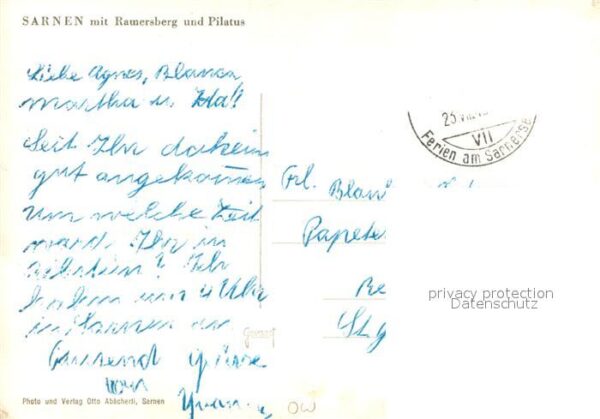 SARNEN mit Ramersberg und Pilatus
Liebe Agnes, Blanca,
Martha u. Ida!!
Seit Ihr daheim
gut angekommen
um welche Zeit
ward Ihr in
? Ihr
haben um 4 Uhr
in Sarnen an.
Tausend Grüsse
von
Yvonne
25.VIII
VII
Ferien am Sarnerse
Frl. Blan
Papete
Be
St. g
privacy protection
Datenschutz
OW
Photo und Verlag Otto Abächerli, Sarnen